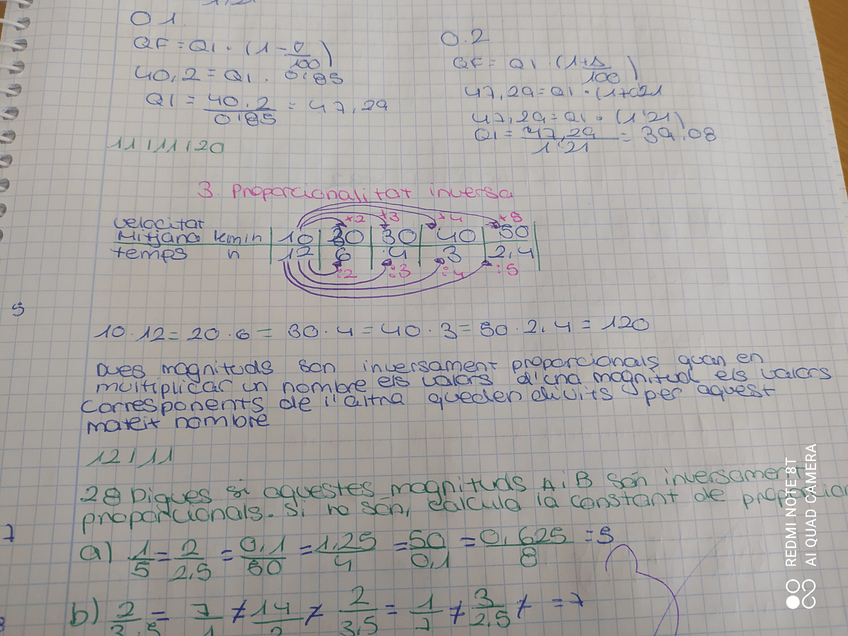 0.1
QF = QI · (1 - 0/100)
40,2 = QI · 0'85
QI = 40,2/0'85 = 47,29
0.2
QF = QI · (1+
/100)
47,29 = QI · (1+0'21
47,29 = QI · (1'21)
QI = 47,29/1'21 = 39.08
11/11/20
3 Proporcionalitat inversa
×2 ×3 ×4
velocitat
Mitjana km/h 10 20 30 40 50
temps h 12 6 4 3 2,4
:2 :3 :4 :5
5
10·12 = 20·6 = 30·4 = 40·3 = 50·2,4 = 120
Dues magnituds son inversament proporcionals quan en
multiplicar un nombre els valors d'una magnitud els valors
corresponents de l'altra queden dividits per aquest
mateix nombre
12/11
28 Digues si aquestes magnituds A i B són inversament
proporcionals. Si ho són, calcula la constant de proporcion
7
a) 1/5 = 2/2,5 = 0,1/50 = 1,25/4 = 50/0,1 = 0,625/8 = 5
b) 2/3,5 = 7/1 ≠ 14/2 ≠ 2/3,5 = 1/7 ≠ 3/2,5 ≠ = 7
REDMI NOTE 8T
AI QUAD CAMERA